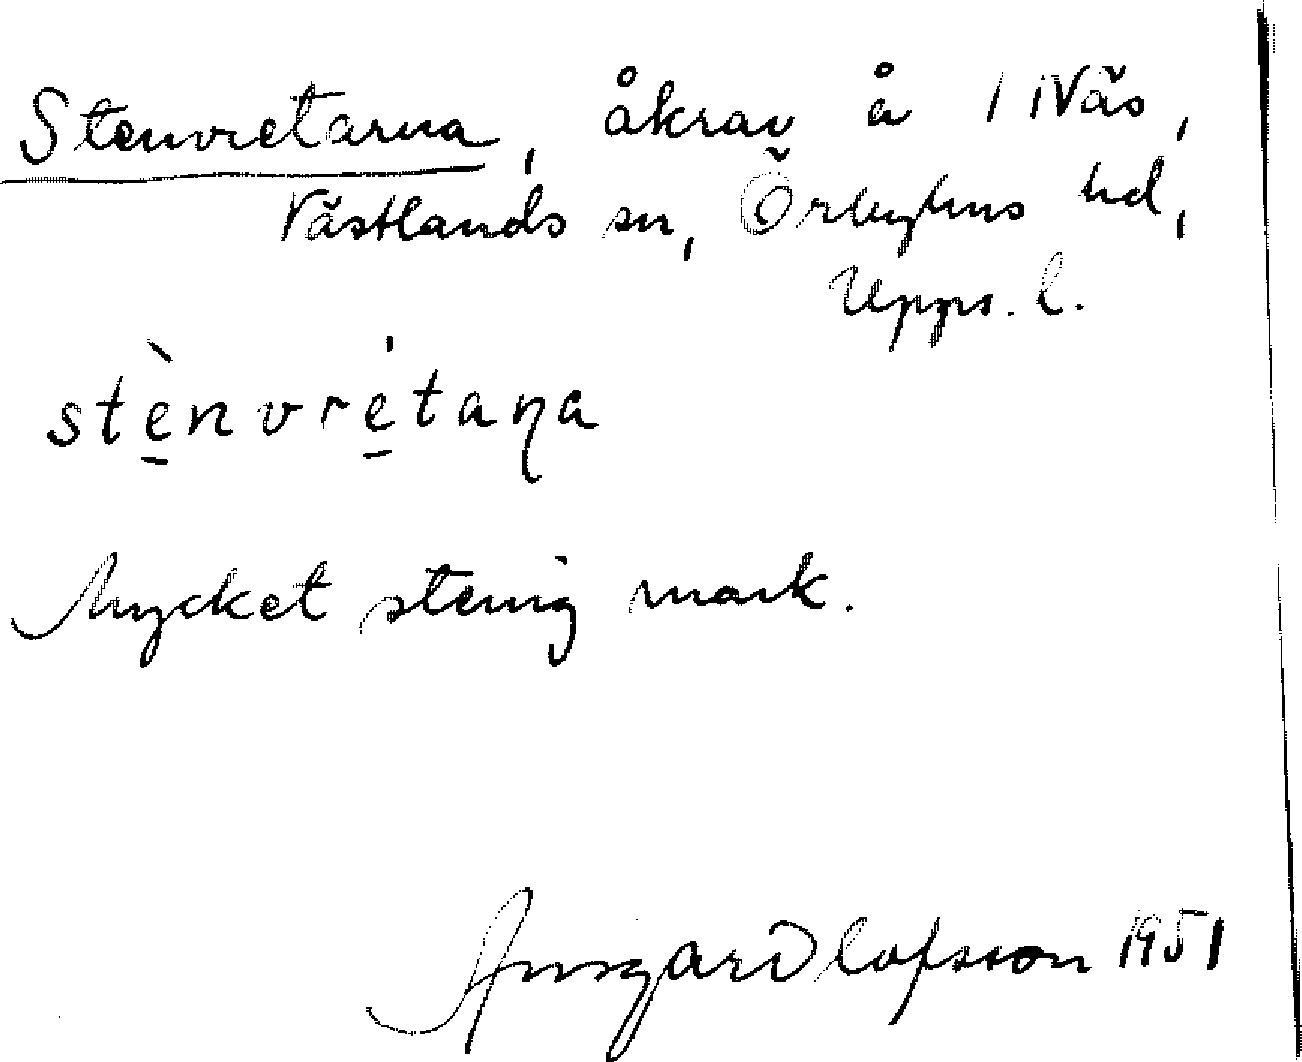 Stenvretarna, åkrar å 1 Näs,
Västlands sn, Örbyhus hd,
Upps. l.
stènvrétaṇa
Mycket stenig mark.
Ansgar Olofsson 1951